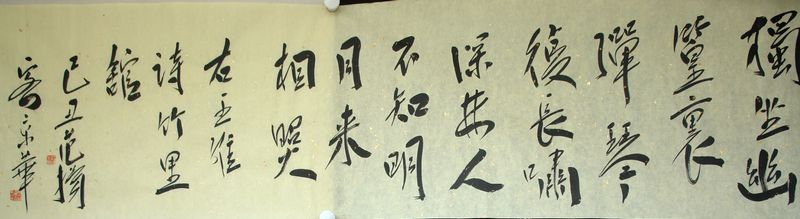 獨坐幽
篁裏
彈琴
復長嘯
深林人
不知明
月来
相照
右王維
詩竹里
館
己丑范揚
客京華